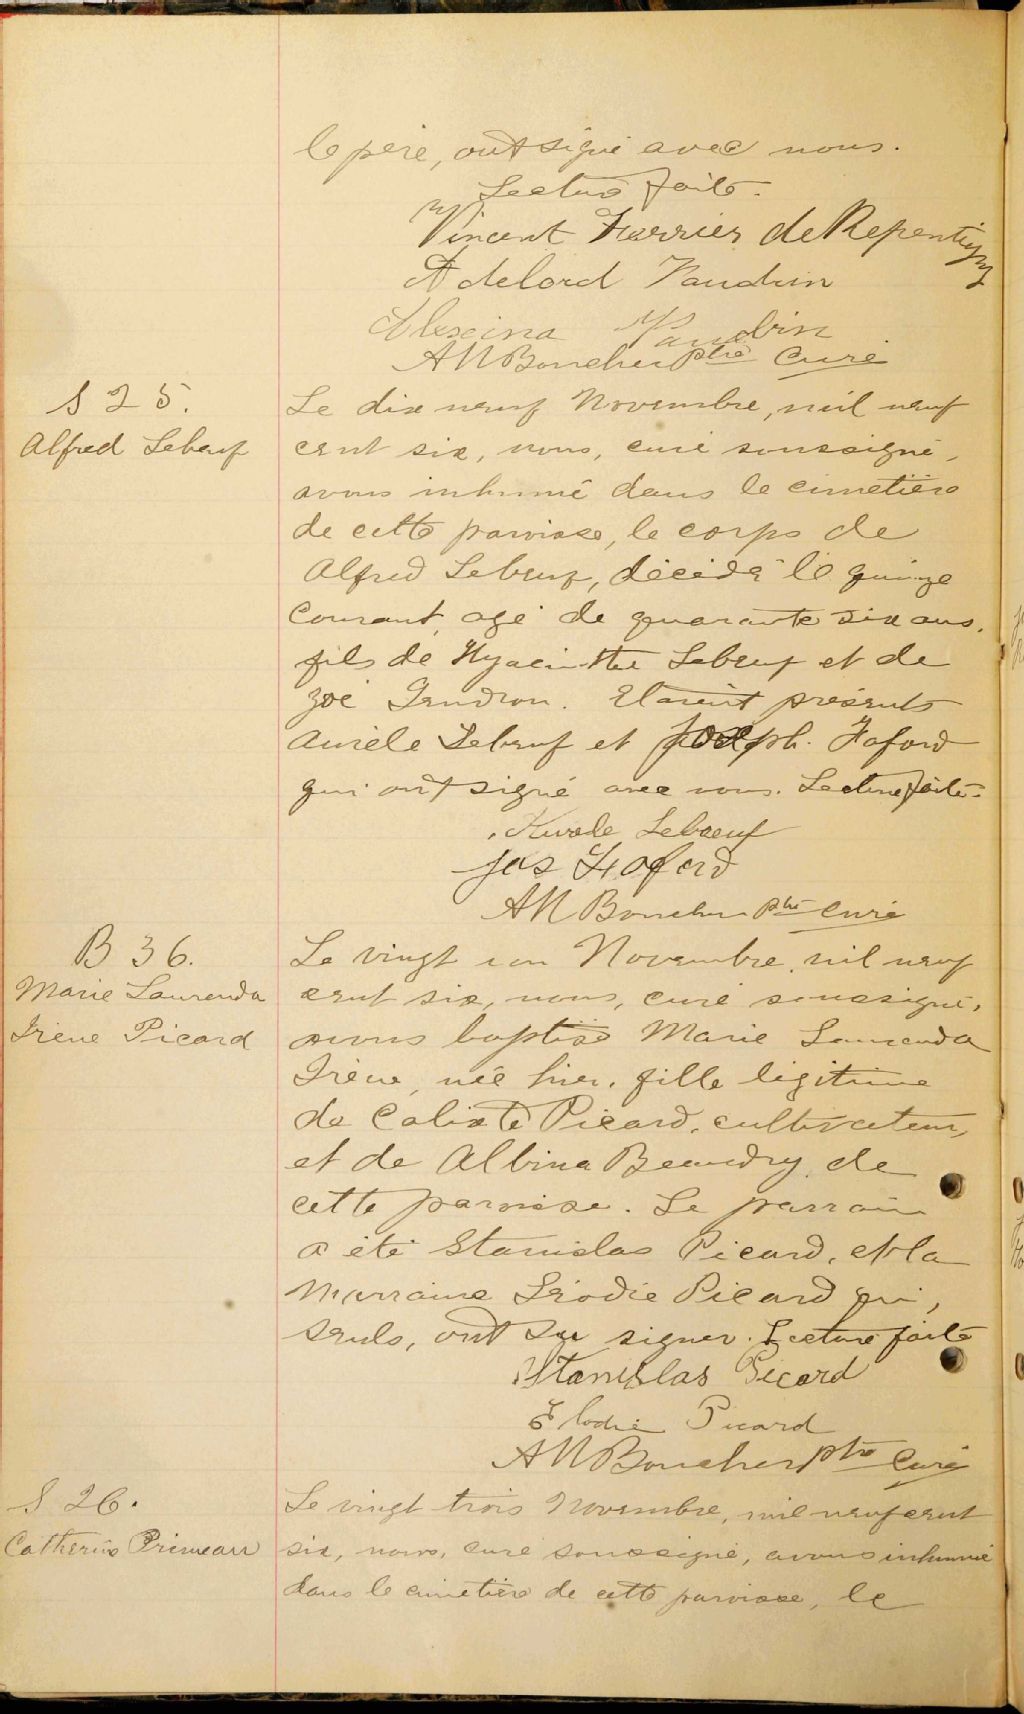 le père, ont signé avec nous.
Lecture faite.
Vincent Ferrier de Repentigny
Adelord Vaudrin
Alexina Vaudrin
A N Boucher ptre Curé
S 25.
Alfred Lebeuf
Le dix neuf Novembre, mil neuf
cent six, nous, curé soussigné,
avons inhumé dans le cimetière
de cette paroisse, le corps de
Alfred Lebeuf, décédé le quinze
courant, agé de quarante six ans,
fils de Hyacinthe Lebeuf et de
Zoé Gendron. Etaient présents
Aurèle Lebeuf et Joseph Foford
qui ont signé avec nous. Lecture faite.
Leboeuf
Jos Foford
A N Boucher ptre Curé
B 36.
Marie Laurenda
Irène Picard
Le vingt un Novembre, mil neuf
cent six, nous, curé soussigné,
avons baptisé Marie Laurenda
Irène, née hier, fille légitime
de Calixte Picard, cultivateur,
et de Albina Beaudry de
cette paroisse. Le parrain
a été Stanislas Picard, et la
marraine Picard qui,
seuls, ont su signer. Lecture faite
Stanislas Picard
Elodie Picard
A N Boucher ptre Curé
S 26.
Catherine Primeau
Le vingt trois Novembre, mil neuf cent
six, nous, curé soussigné, avons inhumé
dans le cimetière de cette paroisse, le